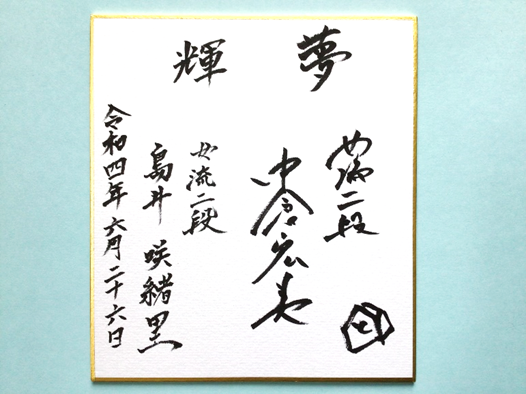 夢
女流二段
中倉宏美
輝
女流二段
島井咲緒里
令和四年六月二十六日